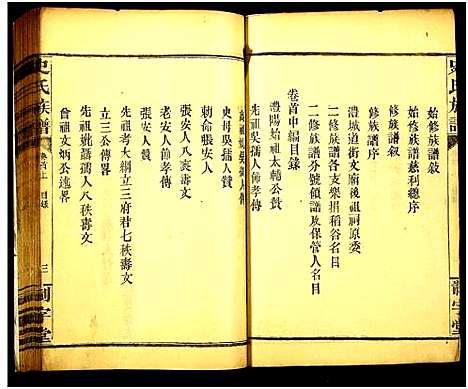 史氏族譜
始修族譜敘
始修族譜慈利總序
修族譜敘
修族譜序
澧城道街文廟後祖祠原委
二修族譜各支樂捐稻谷名目
二修族譜分號領譜以及保管人名目
卷首中編目錄
澧陽始祖太輔公贊
先祖吳孺人節孝傳
史母吳孺人傳
張安人
張安人八袠壽文
老安人節孝傳
立三公傳畧
先祖考大綱立三府君七秩壽文
先祖妣蕭孺人八秩壽文
曾祖文炳公遺畧
史氏族譜
卷首上
目錄
三